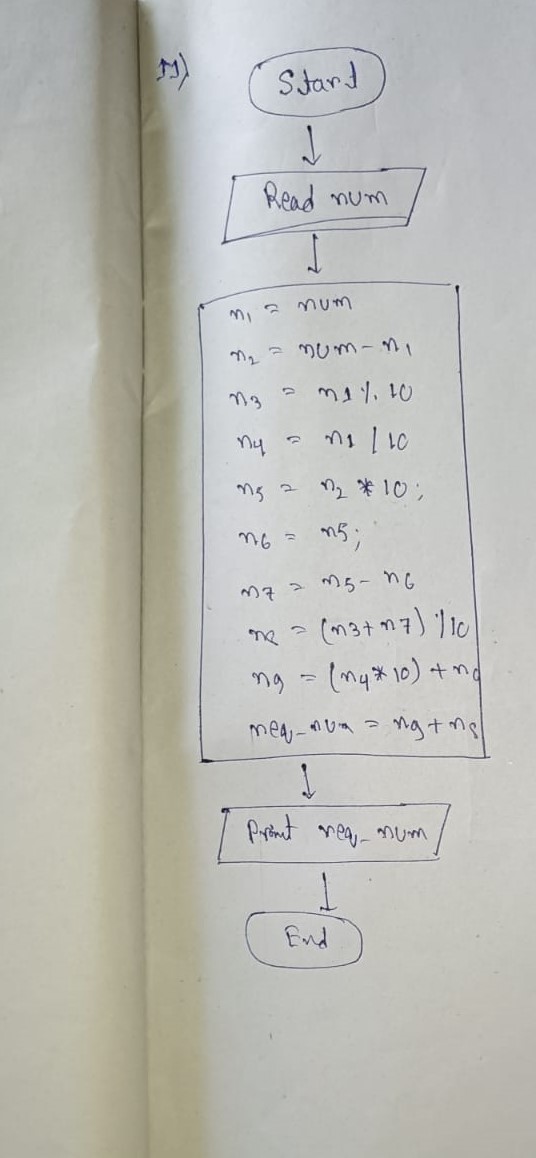 11)
Start
Read num
n1 = num
n2 = num - n1
n3 = n1 % 10
n4 = n1 / 10
n5 = n2 * 10;
n6 = n5;
n7 = n5 - n6
= (n3 + n7) % 10
n9 = (n4 * 10) +
req_num = n9 + n8
Print req_num
End